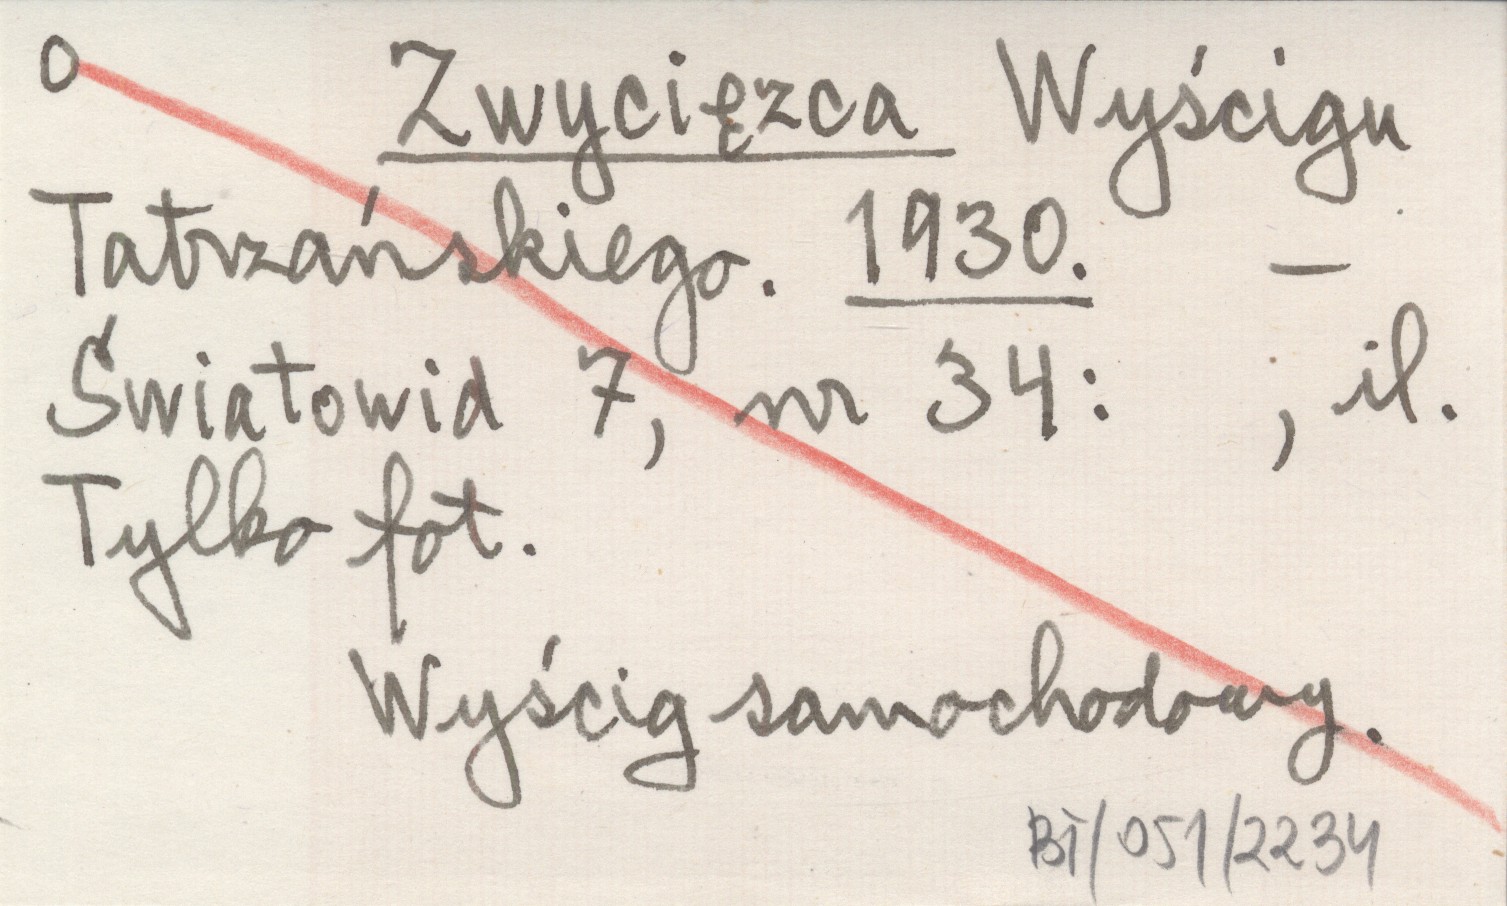 O Zwycięzca Wyścigu
Tatrzańskiego. 1930. —
Światowid 7, nr 34: , il.
Tylko fot.
Wyścig samochodowy.
BT/051/2234